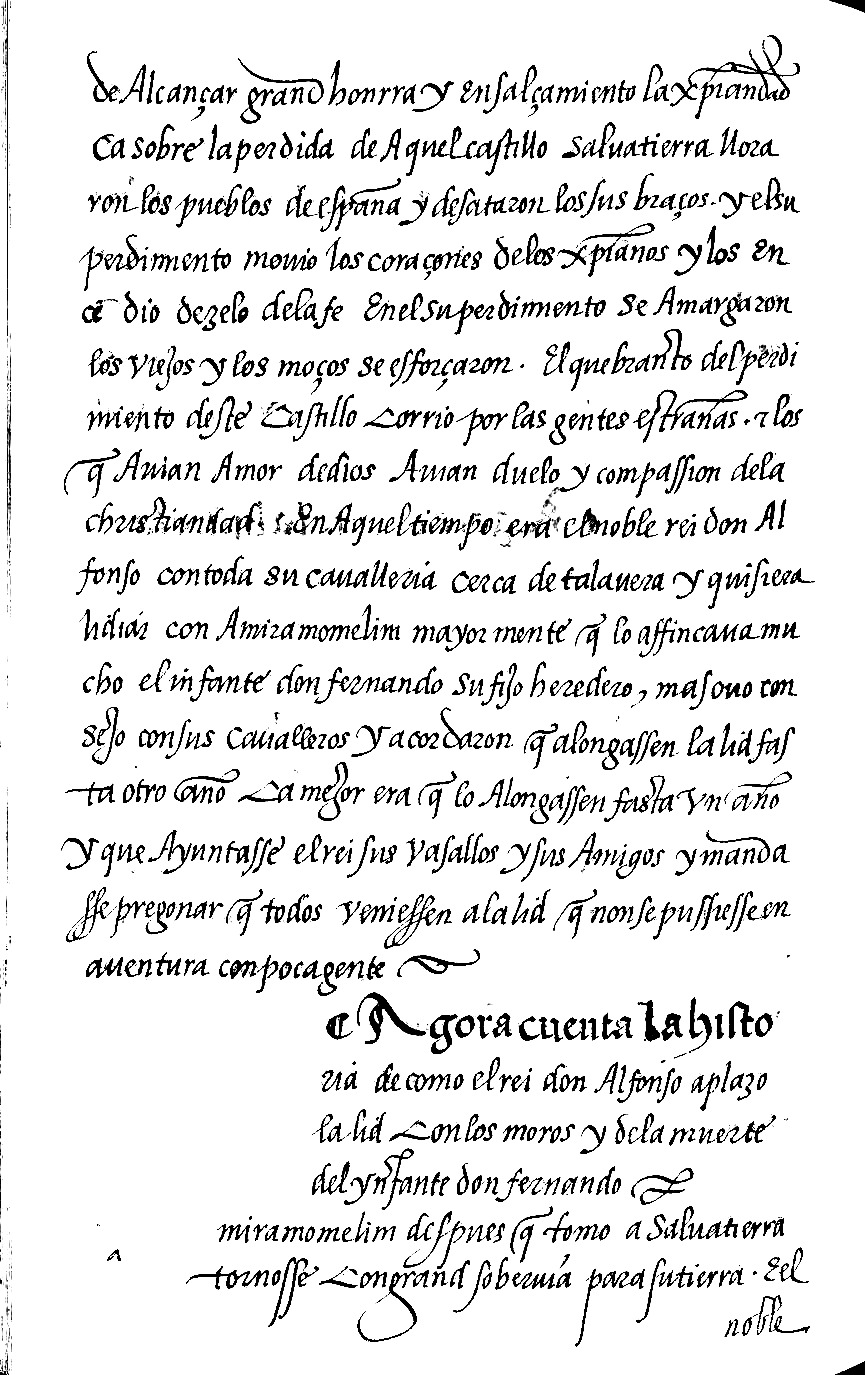 de Alcançar grand honrra y Ensalçamiento la xp̃iandad
Ca sobre la perdida de Aquel castillo Salvatierra llora
ron los pueblos de espãna y desataron los sus braços. y el su
perdimiento movio los coraçones de los xp̃ianos y los En
cẽ dio de zelo de la fe En el su perdimiento se Amargaron
los viejos y los moços se esforçaron. El quebranto del perdi
miento deste Castillo Corrio por las gentes estrãnas. ⁊ los
q̃ Avian Amor de dios Avian duelo y compassion de la
christiandad. En Aquel tiempo era el noble rei don Al
fonso con toda su cavalleria cerca de talavera y quisiera
lidiar con Amiramomelim mayor mente q̃ lo affincava mu
cho el infante don fernando su fijo heredero, mas ovo con
sejo con sus Cavalleros y acordaron q̃ alongassen la lid fas
ta otro año Ca mejor era q̃ lo Alongassen fasta vn año
y que Ayuntasse el rei sus vasallos y sus Amigos y manda
sse pregonar q̃ todos veniessen a la lid q̃ non se pussiesse en
aventura con poca gente
¶ Agora cuenta la histo
ria de como el rei don Alfonso aplazo
la lid Con los moros y de la muerte
del ynfante don fernando
a miramomelim despues q̃ tomo a Salvatierra
tornosse Con grand sobervia para su tierra. E el
noble